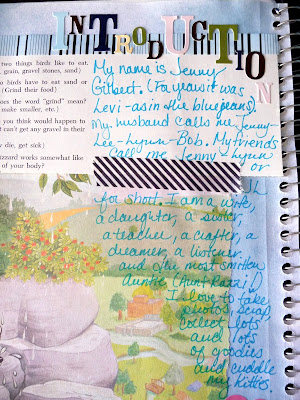 INTRODUCTION
two things birds like to eat.
, grain, gravel stones, sand)
o birds have to eat sand or
(Grind their food)
oes the word "grind" mean?
make smaller, etc.)
you think would happen to
't get any gravel in their
die, get sick)
izzard works somewhat like
of your body?
My name is Jenny
Gilbert. (For years it was
Levi - as in the blue jeans).
My husband calls me Jenny
Lee-Lynn-Bob. My friends
call me Jenny-Lynn
or
for short. I am a wife,
a daughter, a sister,
a teacher, a crafter, a
dreamer, a listener
and the most smitten
auntie
I love to take
photos, scrap,
collect lots
and lots
of goodies
and cuddle
my kitties.